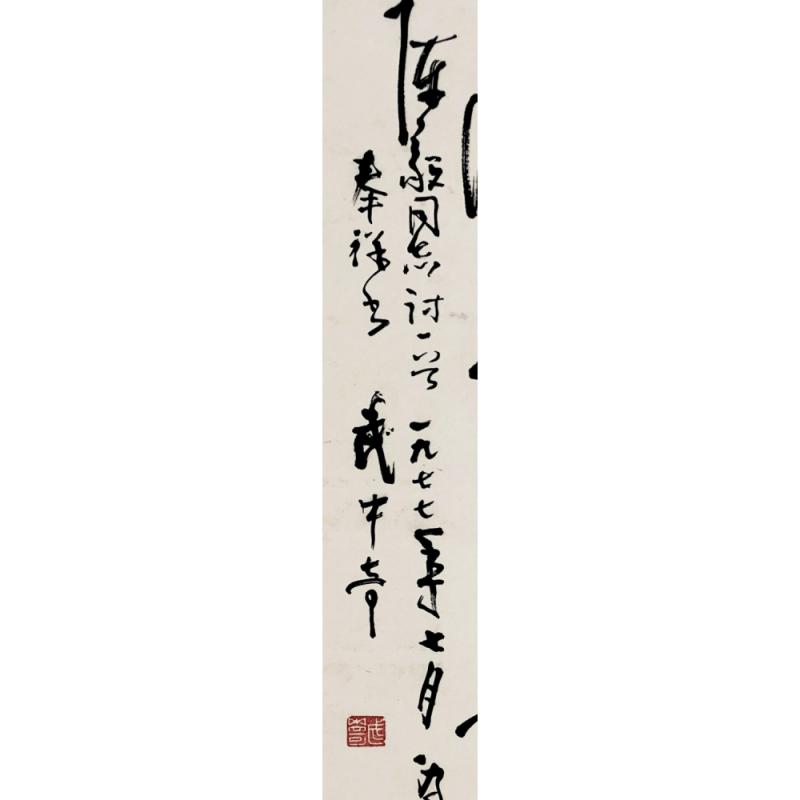 陈毅同志诗一首 一九七七年七月 为
奉祥书 武中奇